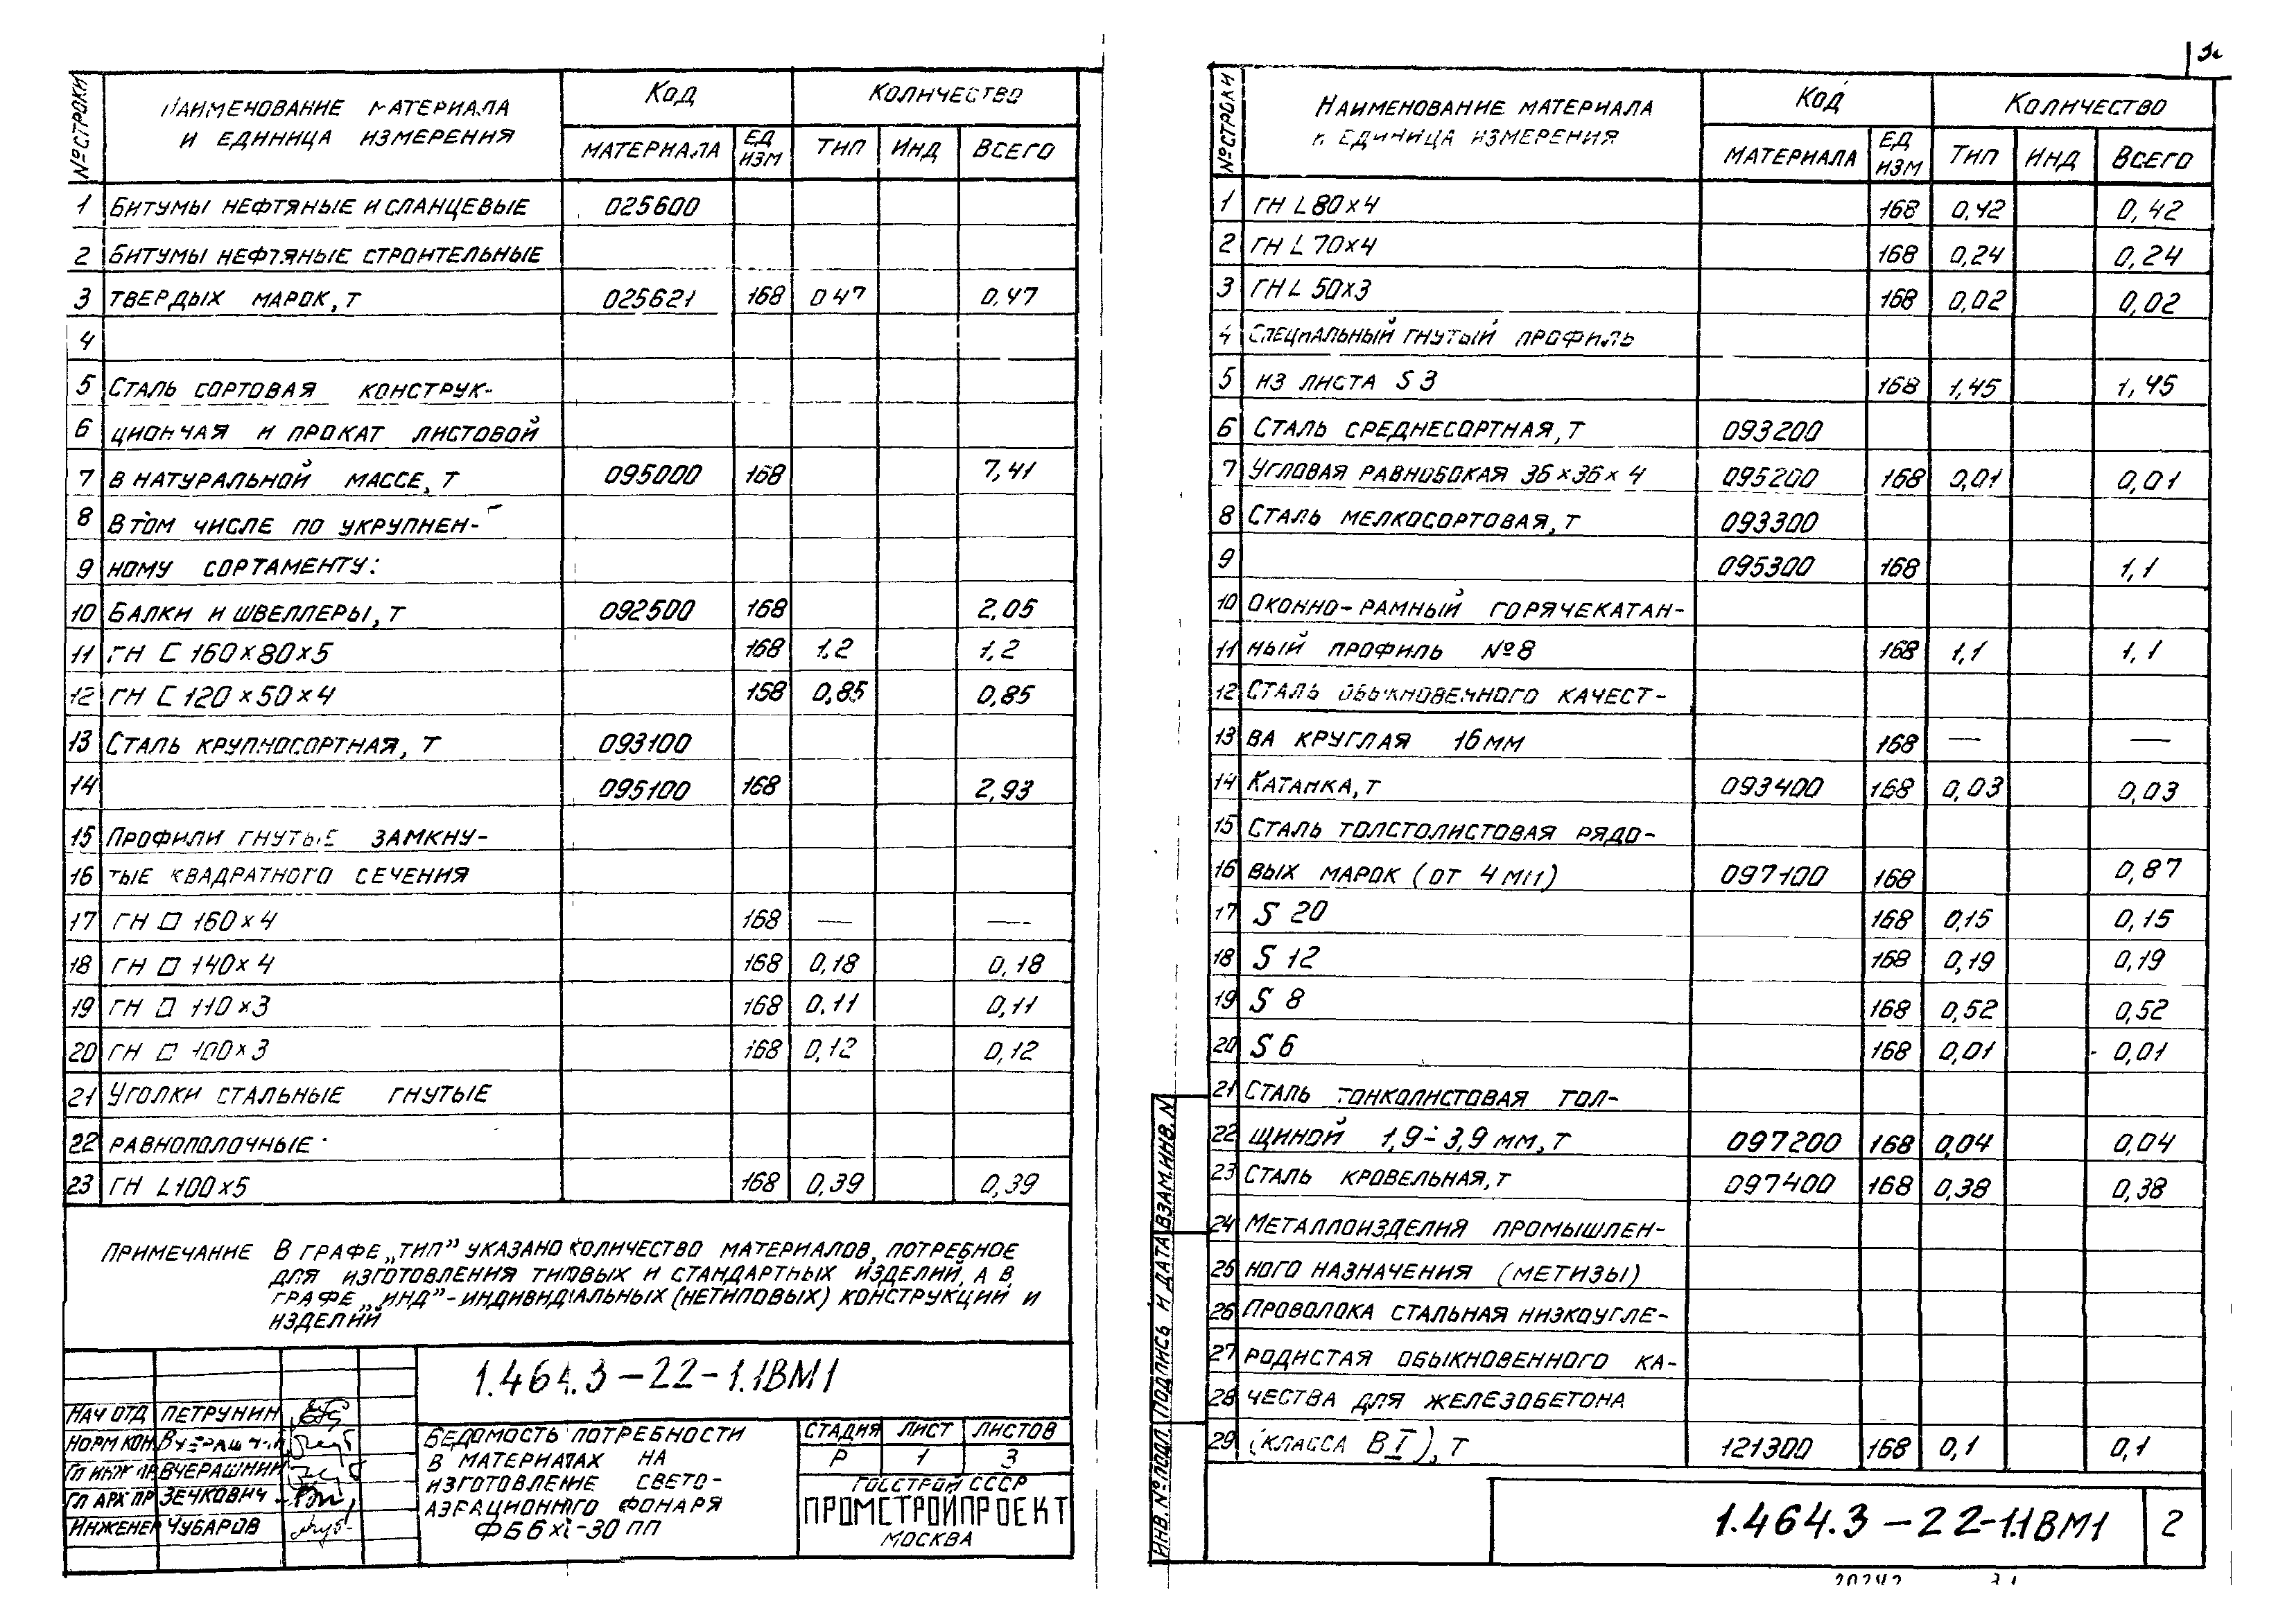 № СТРОКИ НАИМЕНОВАНИЕ МАТЕРИАЛА И ЕДИНИЦА ИЗМЕРЕНИЯ КОД КОЛИЧЕСТВО
МАТЕРИАЛА ЕД ИЗМ ТИП ИНД ВСЕГО
1 БИТУМЫ НЕФТЯНЫЕ И СЛАНЦЕВЫЕ 025600
2 БИТУМЫ НЕФТЯНЫЕ СТРОИТЕЛЬНЫЕ
3 ТВЕРДЫХ МАРОК, Т 025621 168 0 47 0,47
4
5 СТАЛЬ СОРТОВАЯ КОНСТРУК-
6 ЦИОННАЯ И ПРОКАТ ЛИСТОВОЙ
7 В НАТУРАЛЬНОЙ МАССЕ, Т 095000 168 7,41
8 В ТОМ ЧИСЛЕ ПО УКРУПНЕН-
9 НОМУ СОРТАМЕНТУ:
10 БАЛКИ И ШВЕЛЛЕРЫ, Т 092500 168 2,05
11 ГН [ 160×80×5 168 1,2 1,2
12 ГН [ 120×50×4 168 0,85 0,85
13 СТАЛЬ КРУПНОСОРТНАЯ, Т 093100
14 095100 168 2,93
15 ПРОФИЛИ ГНУТЫЕ ЗАМКНУ-
16 ТЫЕ КВАДРАТНОГО СЕЧЕНИЯ
17 ГН □ 160×4 168 — —
18 ГН □ 140×4 168 0,18 0,18
19 ГН □ 110×3 168 0,11 0,11
20 ГН □ 100×3 168 0,12 0,12
21 УГОЛКИ СТАЛЬНЫЕ ГНУТЫЕ
22 РАВНОПОЛОЧНЫЕ
23 ГН L100×5 168 0,39 0,39
ПРИМЕЧАНИЕ В ГРАФЕ „ТИП” УКАЗАНО КОЛИЧЕСТВО МАТЕРИАЛОВ, ПОТРЕБНОЕ
ДЛЯ ИЗГОТОВЛЕНИЯ ТИПОВЫХ И СТАНДАРТНЫХ ИЗДЕЛИЙ, А В
ГРАФЕ „ИНД”-ИНДИВИДУАЛЬНЫХ (НЕТИПОВЫХ) КОНСТРУКЦИЙ И
ИЗДЕЛИЙ
1.464.3-22-1.1ВМ1
НАЧ ОТД ПЕТРУНИН
НОРМ КОН. ВЧЕРАШНИЙ
ГЛ ИНЖ ПР ВЧЕРАШНИЙ
ГЛ АРХ ПР ЗЕЧКОВИЧ
ИНЖЕНЕР ЧУБАРОВ
ВЕДОМОСТЬ ПОТРЕБНОСТИ
В МАТЕРИАЛАХ НА
ИЗГОТОВЛЕНИЕ СВЕТО-
АЭРАЦИОННОГО ФОНАРЯ
СТАДИЯ ЛИСТ ЛИСТОВ
Р 1 3
ГОССТРОЙ СССР
ПРОМСТРОЙПРОЕКТ
МОСКВА
№ СТРОКИ НАИМЕНОВАНИЕ МАТЕРИАЛА И ЕДИНИЦА ИЗМЕРЕНИЯ КОД КОЛИЧЕСТВО
МАТЕРИАЛА ЕД ИЗМ ТИП ИНД ВСЕГО
1 ГН L80×4 168 0,42 0,42
2 ГН L 70×4 168 0,24 0,24
3 ГН L 50×3 168 0,02 0,02
4 СПЕЦИАЛЬНЫЙ ГНУТЫЙ ПРОФИЛЬ
5 ИЗ ЛИСТА S 3 168 1,45 1,45
6 СТАЛЬ СРЕДНЕСОРТНАЯ, Т 093200
7 УГЛОВАЯ РАВНОБОКАЯ 36×36×4 095200 168 0,01 0,01
8 СТАЛЬ МЕЛКОСОРТОВАЯ, Т 093300
9 095300 168 1,1
10 ОКОННО-РАМНЫЙ ГОРЯЧЕКАТАН-
11 НЫЙ ПРОФИЛЬ №8 168 1,1 1,1
12 СТАЛЬ ОБЫКНОВЕННОГО КАЧЕСТ-
13 ВА КРУГЛАЯ 16 ММ 168 — —
14 КАТАНКА, Т 093400 168 0,03 0,03
15 СТАЛЬ ТОЛСТОЛИСТОВАЯ РЯДО-
16 ВЫХ МАРОК (ОТ 4 ММ) 097100 168 0,87
17 S 20 168 0,15 0,15
18 S 12 168 0,19 0,19
19 S 8 168 0,52 0,52
20 S 6 168 0,01 0,01
21 СТАЛЬ ТОНКОЛИСТОВАЯ ТОЛ-
22 ЩИНОЙ 1,9÷3,9 ММ, Т 097200 168 0,04 0,04
23 СТАЛЬ КРОВЕЛЬНАЯ, Т 097400 168 0,38 0,38
24 МЕТАЛЛОИЗДЕЛИЯ ПРОМЫШЛЕН-
25 НОГО НАЗНАЧЕНИЯ (МЕТИЗЫ)
26 ПРОВОЛОКА СТАЛЬНАЯ НИЗКОУГЛЕ-
27 РОДИСТАЯ ОБЫКНОВЕННОГО КА-
28 ЧЕСТВА ДЛЯ ЖЕЛЕЗОБЕТОНА
29 (КЛАССА ВI), Т 121300 168 0,1 0,1
ИНВ. № ПОДЛ. ПОДПИСЬ И ДАТА ВЗАМ.ИНВ. №
1.464.3-22-1.1ВМ1 2